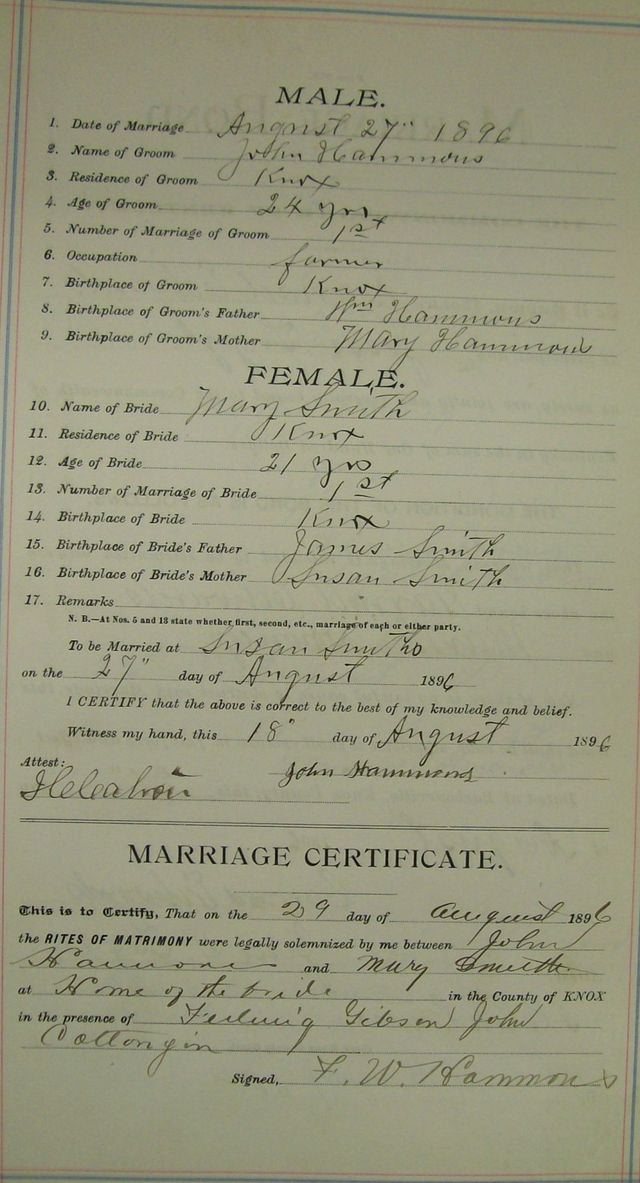 MALE.
1. Date of Marriage August 27" 1896
2. Name of Groom John Hammons
3. Residence of Groom Knox
4. Age of Groom 24 yrs
5. Number of Marriage of Groom 1st
6. Occupation farmer
7. Birthplace of Groom Knox
8. Birthplace of Groom's Father Wm Hammons
9. Birthplace of Groom's Mother Mary Hammons
FEMALE.
10. Name of Bride Mary Smith
11. Residence of Bride Knox
12. Age of Bride 21 yrs
13. Number of Marriage of Bride 1st
14. Birthplace of Bride Knox
15. Birthplace of Bride's Father James Smith
16. Birthplace of Bride's Mother Susan Smith
17. Remarks
N. B.—At Nos. 5 and 13 state whether first, second, etc., marriage of each or either party.
To be Married at Susan Smiths
on the 27" day of August 1896
I CERTIFY that the above is correct to the best of my knowledge and belief.
Witness my hand, this 18" day of August 1896
Attest: John Hammons
MARRIAGE CERTIFICATE.
This is to Certify, That on the 29 day of August 1896
the RITES OF MATRIMONY were legally solemnized by me between John
Hammons and Mary Smith
at Home of the bride in the County of KNOX
in the presence of Gibson John
Cottongin
Signed, F. W. Hammons